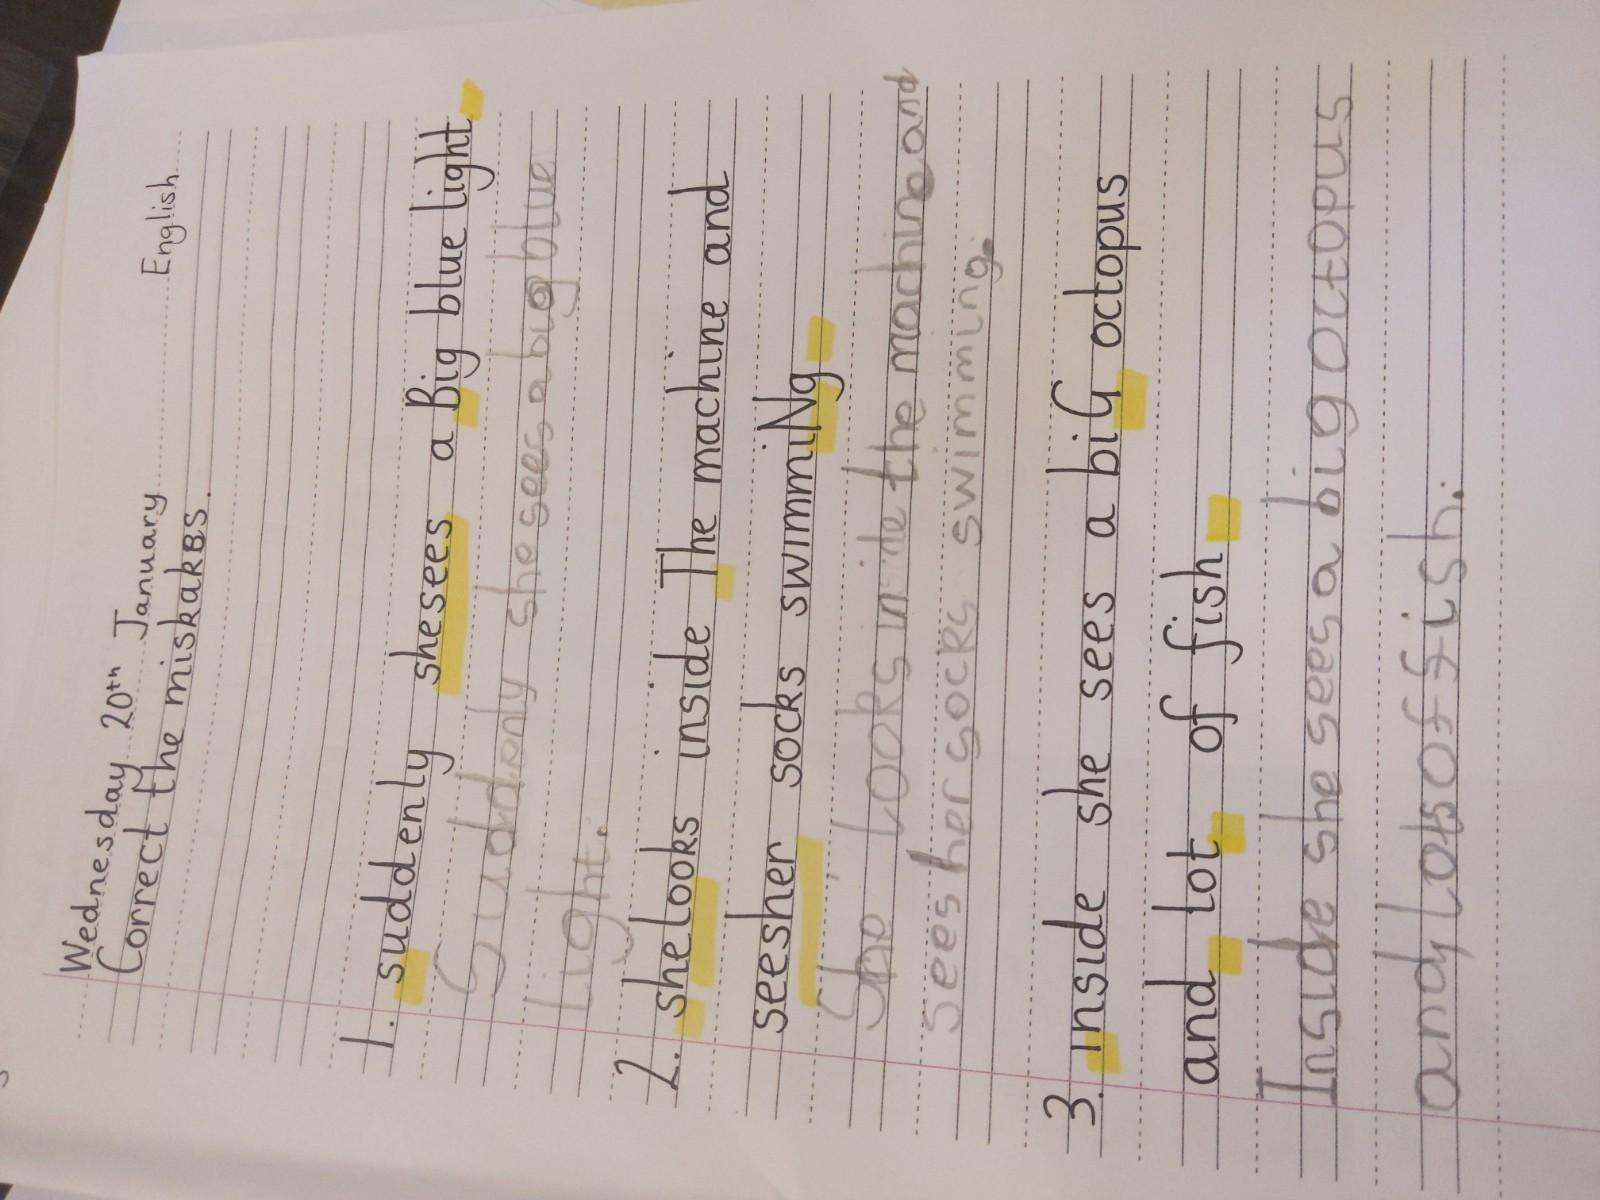 Wednesday 20th January English
Correct the miskakBs.
1. suddenly shesees a Big blue light
Suddonly she sees a big blue
light.
2. shelooks inside The machine and
seesher socks swimmiNg
She looks inside the machine and
sees her socks swimming.
3. inside she sees a biG octopus
and lot of fish
Inside she sees a big octopus
and lots of fish.